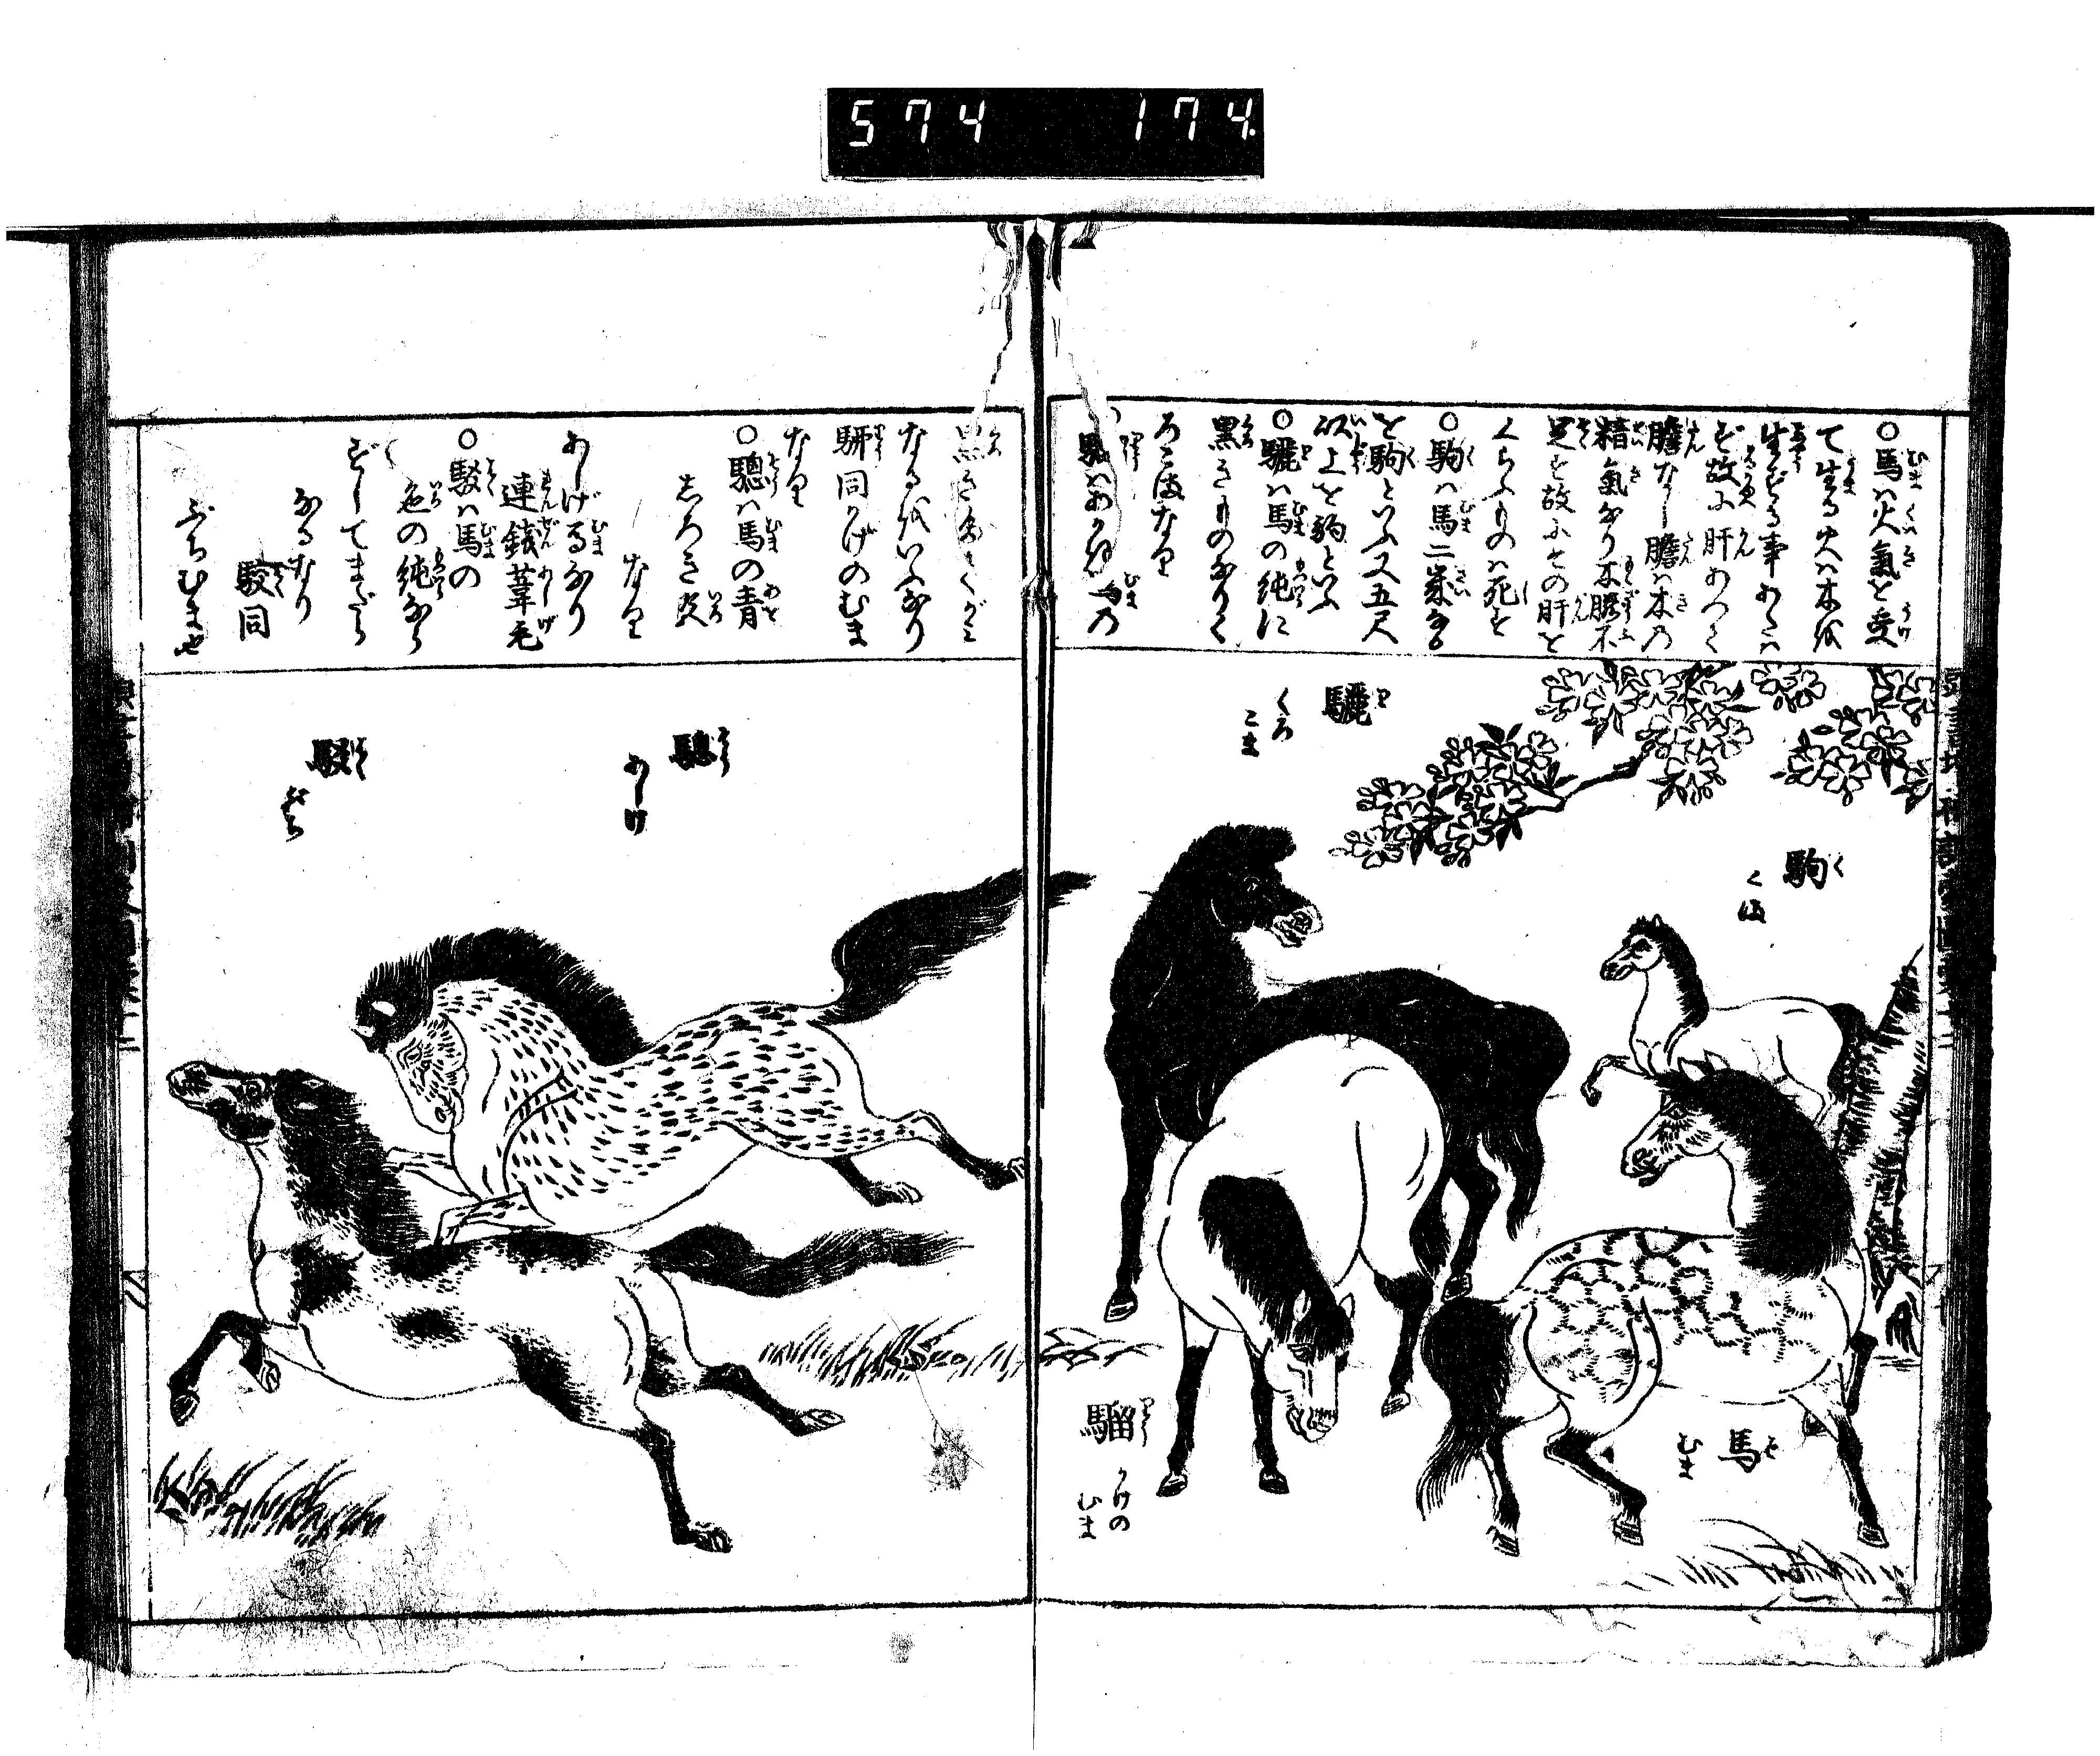 574 174
○馬ハ火氣を受
て生る火ハ木を
生ずる事あたハ
ず故に肝あつて
膽なし膽ハ木の
精氣なり木臓不
足す故にその肝を
くらふものハ死す
○駒ハ馬二歳なる
を駒といふ又五尺
以上を駒といふ
○驪ハ馬の純に
黒きものなりく
ろこまなり
○騮ハあかき馬の
黒き
なるをいふなり
騈同かげのむま
なり
○驄ハ馬の青
しろき色
なり
あしげむまなり
連銭葦毛
○駁ハ馬の
色の純なら
ずしてまだら
なるなり
駮同
ぶちむま也
驪 り
くろ
こま
駒 く
こま
馬 ば
むま
騮 りう
かげの
むま
驄 そう
あしげ
駁 はく
ぶち